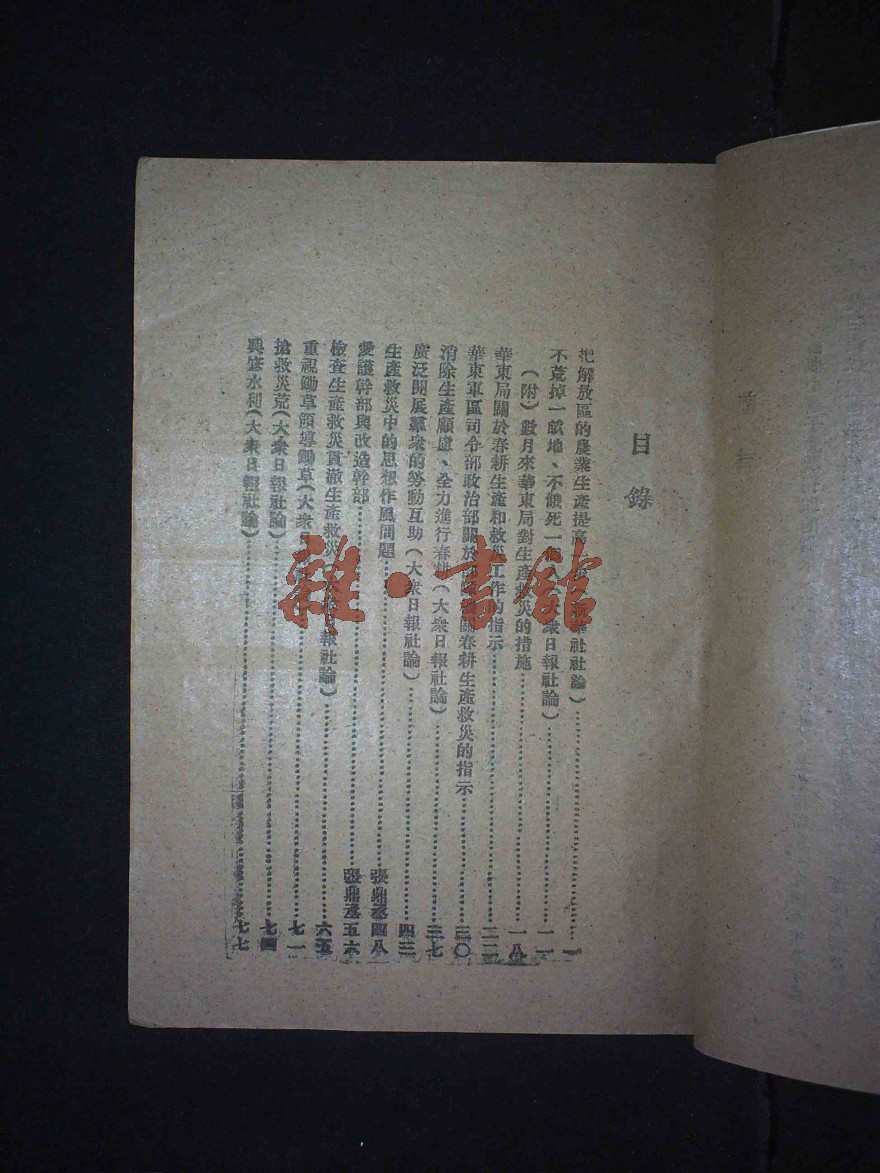 目錄
把解放區的農業生產提高 社社論）⋯⋯一
不荒掉一畝地、不餓死一個人（大衆日報社論）⋯⋯一一
（附）數月來華東局對生產救災的措施⋯⋯一八
華東局關於春耕生產和救災工作的指示⋯⋯二二
華東軍區司令部政治部關於 春耕生產救災的指示⋯⋯三〇
消除生產顧慮、全力進行春耕（大衆日報社論）⋯⋯三七
廣泛開展羣衆的勞動互助（大衆日報社論）⋯⋯四三
生產救災中的思想作風問題⋯⋯張鼎丞四八
愛護幹部與改造幹部⋯⋯張鼎丞五六
檢查生產救災貫澈生產救災（大衆日報社論）⋯⋯六五
重視鋤草領導鋤草（大衆⋯⋯七一
搶救災荒（大衆日報社論）⋯⋯七四
興修水利（大衆日報社論）⋯⋯七七
雜·書館